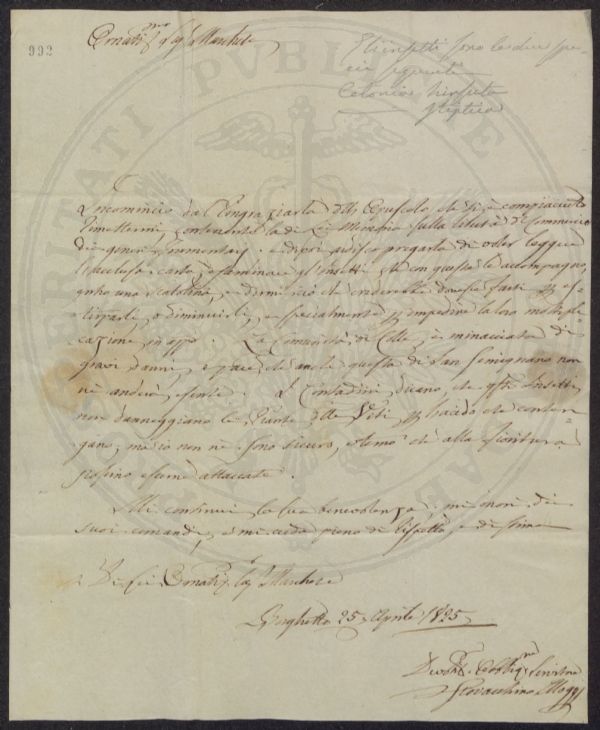 992
Ornatis.mo Sig.r Marchese
Gl'insetti sono le due spe-
cie seguenti
Cetonia hirsuta
stiptica
Incomincio da ringraziarla dell'Opuscolo che si è compiaciuto
rimettermi, contenente la di Lei Memoria sulla libertà di Commercio
dei generi frumentarj, e di poi ardisco pregarla di voler leggere
l'acclusa carta, esaminare gl'Insetti che con questa le accompagno,
entro una scatolina, e dirmi ciò che crederebbe dovesse farsi p es-
tirparli, o diminuirli, e specialmente p impedire la loro moltipli-
cazione in app.o. La Comunità di Colle è minacciata di
gravi danni, e pare che anche questa di San Gimignano non
ne anderà esente. I Contadini dicono che gsti Insetti
non danneggiano le Piante delle Viti p l'acido che conten-
gano, ma io non ne sono sicuro, e temo che alla fioritura
possino esserne attaccate.
Mi continui la sua benevolenza, mi onori dei
suoi comandi, e mi creda pieno di rispetto e di stima
Di Lei Ornatis. Sig. Marchese
25 Aprile 1825
Devot. Obblig.mo Servitore
Giovacchino
VERITATI PVBLICAE